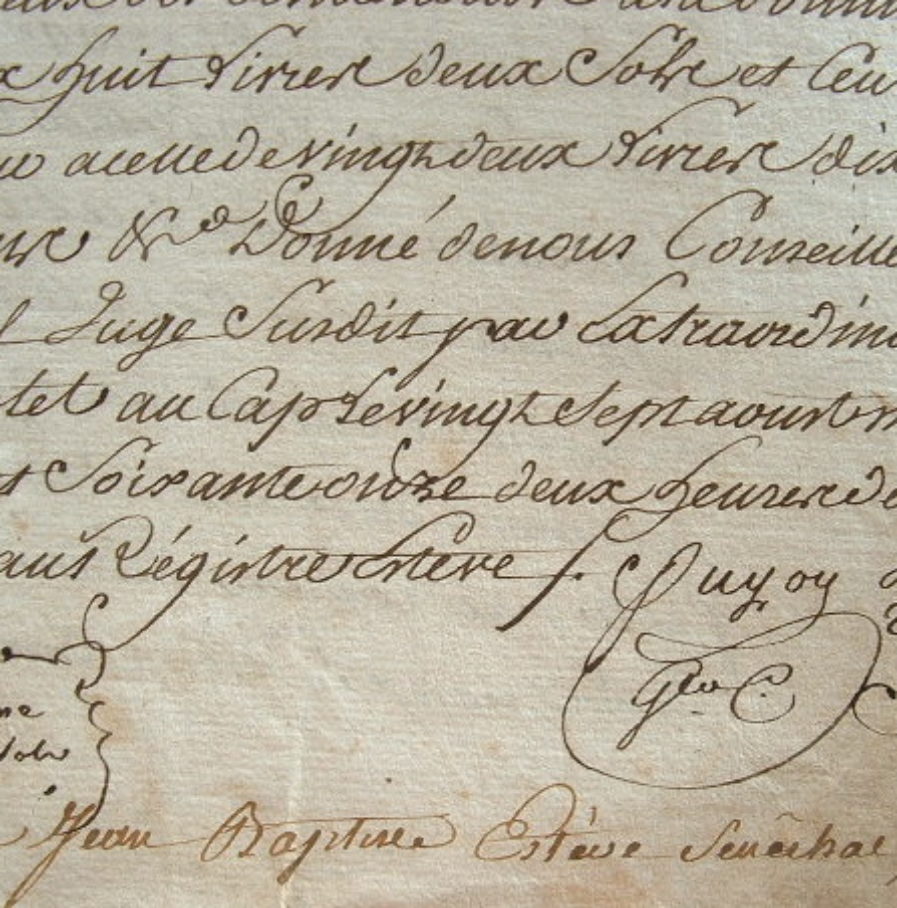 x huit Livres deux Sols et
a celle de vingt deux Livres dix
&ca Donné de nous Conseille
Juge Susdit par Extraordina
au Cap Le vingt Sept aoust m
Soixante onze deux heures de
Régistre Estève /. Puyoy
Geo C.
ne
Sols
Jean Baptiste Estève Senéchal